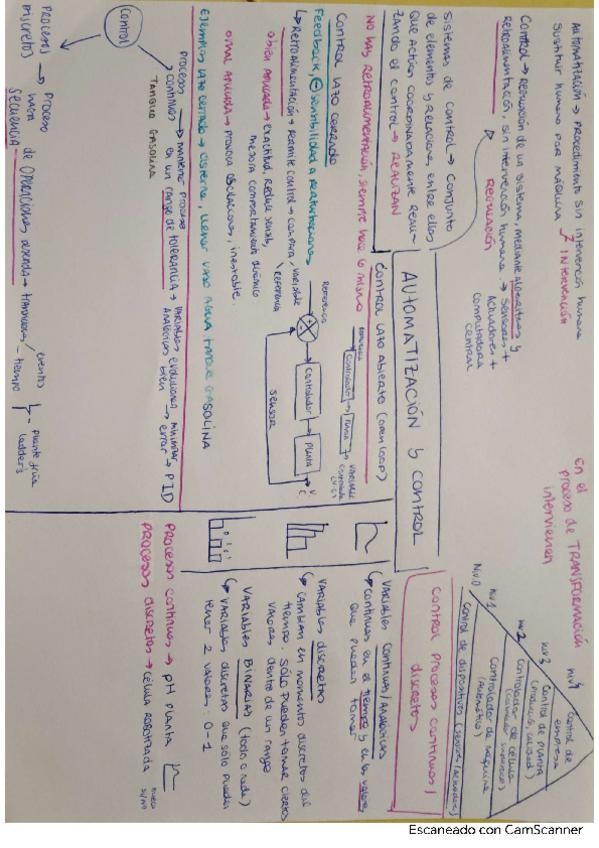 AUTOMATIZACIÓN → PROCEDIMIENTO SIN INTERVENCIÓN HUMANA
SUSTITUIR HUMANO POR MÁQUINA
INTERVENCIÓN
CONTROL → REGULACIÓN DE UN SISTEMA, MEDIANTE ALGORITMOS Y
RETROALIMENTACIÓN, SIN INTERVENCIÓN HUMANA → SENSORES +
ACTUADORES +
COMPUTADORA
CENTRAL
REGULACIÓN
SISTEMAS DE CONTROL → CONJUNTO
DE ELEMENTOS Y RELACIONES ENTRE ELLOS
QUE ACTÚAN COORDINADAMENTE
EL CONTROL → REALIZAN
AUTOMATIZACIÓN Y CONTROL
En el
proceso de TRANSFORMACIÓN
intervienen
NIV 4 CONTROL DE
EMPRESA
NIV 3 CONTROL DE PLANTA
(PRODUCCIÓN, CALIDAD)
NIV 2 CONTROLADOR DE CÉLULA
NIV 1 CONTROLADOR DE MÁQUINA
(AUTOMÁTICO)
NIV 0 CONTROL DE DISPOSITIVOS
CONTROL LAZO ABIERTO (OPEN LOOP)
NO HAY RETROALIMENTACIÓN, SIEMPRE HACE LO MISMO
REFERENCIA → CONTROLADOR → PLANTA → VARIABLE
CONTROLADA
CONTROL LAZO CERRADO
Feedback, ⊖ SENSIBILIDAD A PERTURBACIONES
↳ RETROALIMENTACIÓN → PERMITE CONTROL → COMPARA VARIABLE
REFERENCIA
BIEN APLICADA → EXACTITUD, REDUCE SENSIB,
MEJORA COMPORTAMIENTO DINÁMICO
MAL APLICADA → PROVOCA OSCILACIONES, INESTABLE
REFERENCIA
CONTROLADOR → PLANTA
SENSOR
EJEMPLOS LAZO CERRADO → CISTERNA, LLENAR VASO AGUA, TANQUE GASOLINA
CONTROL PROCESOS CONTINUOS /
DISCRETOS
VARIABLES CONTINUAS/ANALÓGICAS
↳ CONTINUAS EN EL TIEMPO Y EN LOS VALORES
QUE PUEDEN TOMAR
VARIABLES DISCRETAS
↳ CAMBIAN EN MOMENTO DISCRETOS DEL
TIEMPO. SÓLO PUEDEN TOMAR CIERTOS
VALORES DENTRO DE UN RANGO
VARIABLES BINARIAS (TODO O NADA)
↳ VARIABLES DISCRETAS QUE SÓLO PUEDEN
TENER 2 VALORES, 0-1
CONTROL
PROCESOS
CONTINUOS → MANTENER PROCESO
EN UN RANGO DE TOLERANCIA → VARIABLES EVOLUCIONAN
ANALÓGICAS
MINIMIZAR
ERROR → PID
TANQUE GASOLINA
PROCESOS
DISCRETOS → PROCESO
HAGA
SECUENCIA DE OPERACIONES
EVENTOS
TIEMPO
PROCESO CONTINUOS → pH PLANTA
PROCESOS DISCRETOS → CÉLULA ROBOTIZADA
Escaneado con CamScanner